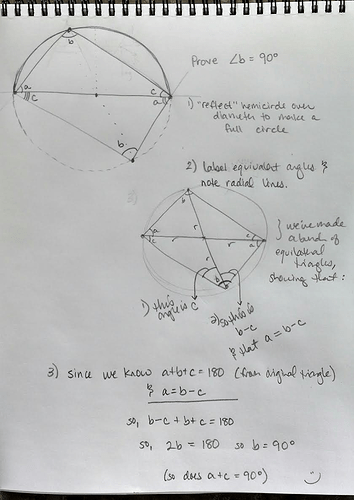 b
a
c
c
a
b
Prove ∠b = 90°
1) "reflect" hemicircle over
diameter to make a
full circle
2) label equivalent angles &
note radial lines.
b
a
c
r
r
r
c
a
b
} we've made
a bunch of
equilateral
triangles,
showing that:
1) this
angle is c
2) so this is
b-c
& that a = b-c
3) since we know a+b+c = 180 (from original triangle)
& a = b-c
so, b-c + b+c = 180
so, 2b = 180 so b = 90°
(so does a+c = 90°)